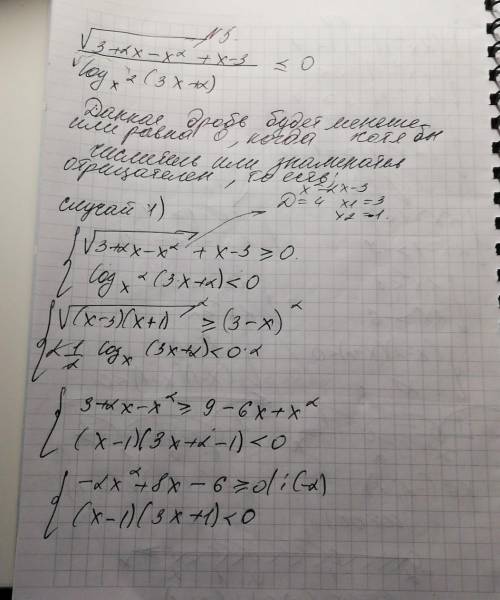 №5.
√(3+2x-x²) + x-3
/ log_x² (3x+2) ≤ 0
Данная дробь будет меньше
или равна 0, когда хотя бы
числитель или знаменатель
отрицателен, то есть:
x²-2x-3
D=4 x1=3
x2=-1.
случай 1)
{ √(3+2x-x²) + x-3 ≥ 0.
log_x² (3x+2) < 0
{ √((x-3)(x+1))² ≥ (3-x)²
2·1/2 log_x (3x+2) < 0·2
{ 3+2x-x² ≥ 9-6x+x²
(x-1)(3x+2-1) < 0
{ -2x²+8x-6 ≥ 0 | :(-2)
(x-1)(3x+1) < 0